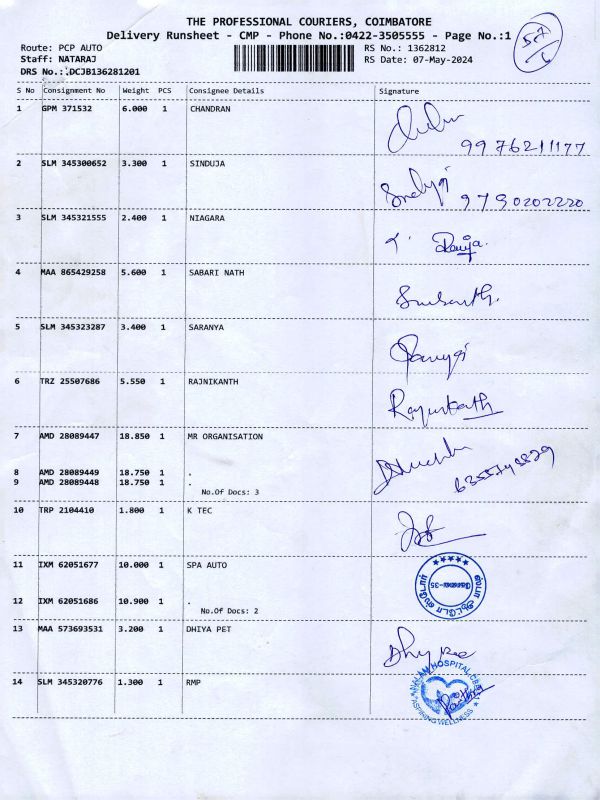 THE PROFESSIONAL COURIERS, COIMBATORE
Delivery Runsheet - CMP - Phone No.:0422-3505555 - Page No.:1
57/6
Route: PCP AUTO RS No.: 1362812
Staff: NATARAJ RS Date: 07-May-2024
DRS No.:.DCJB136281201
S No Consignment No Weight PCS Consignee Details Signature
1 GPM 371532 6.000 1 CHANDRAN
9976211177
2 SLM 345300652 3.300 1 SINDUJA
9790202220
3 SLM 345321555 2.400 1 NIAGARA
4 MAA 865429258 5.600 1 SABARI NATH
5 SLM 345323287 3.400 1 SARANYA
6 TRZ 25507686 5.550 1 RAJNIKANTH
7 AMD 28089447 18.850 1 MR ORGANISATION
8 AMD 28089449 18.750 1 .
9 AMD 28089448 18.750 1 .
No.Of Docs: 3
10 TRP 2104410 1.800 1 K TEC
11 IXM 62051677 10.000 1 SPA AUTO
12 IXM 62051686 10.900 1 .
No.Of Docs: 2
13 MAA 573693531 3.200 1 DHIYA PET
14 SLM 345320776 1.300 1 RMP